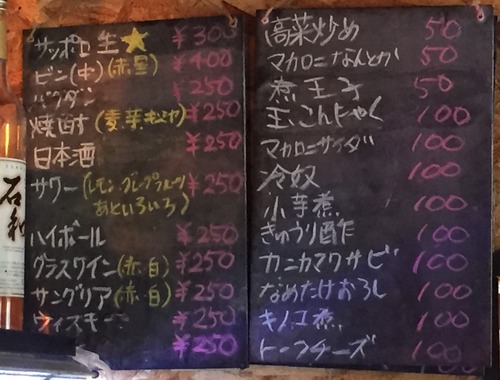 サッポロ生★ ¥300
ビン(中)(赤星) ¥400
バクダン ¥250
焼酎(麦芋キンミヤ) ¥250
日本酒 ¥250
サワー(レモン、グレープフルーツ ¥250
あといろいろ)
ハイボール ¥250
グラスワイン(赤・白) ¥250
サングリア(赤・白) ¥250
ウィスキー ¥250
¥250
高菜炒め 50
マカロニなんとか 50
煮玉子 50
玉こんにゃく 100
マカロニサラダ 100
冷奴 100
小芋煮 100
きゅうり酢 100
カニカマワサビ 100
なめたけおろし 100
キノコ煮 100
トーフチーズ 100
石和